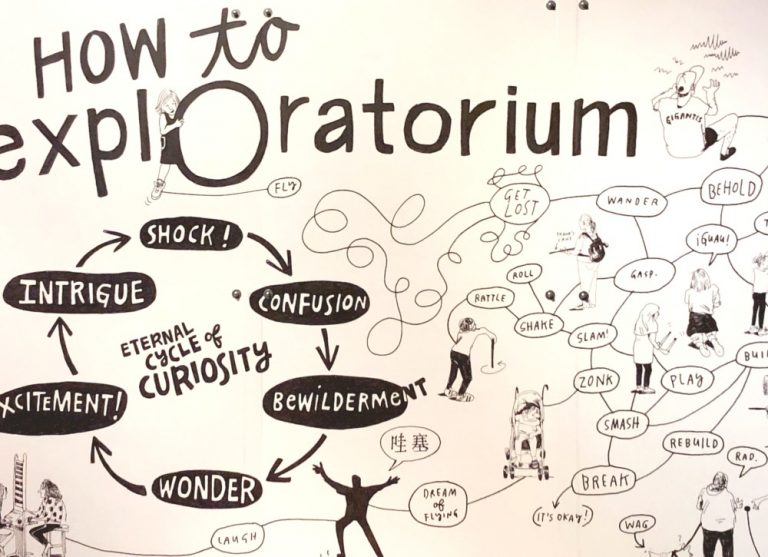 HOW to
explOratorium
GIGANTIS
FLY
GET
LOST
WANDER
BEHOLD
¡GUAU!
SHOCK!
INTRIGUE
CONFUSION
ETERNAL
CYCLE of
CURIOSITY
XCITEMENT!
BEWILDERMENT
WONDER
ROLL
RATTLE
SHAKE
GASP.
SLAM!
ZONK
PLAY
BUI
SMASH
REBUILD
RAD.
BREAK
(IT'S OKAY!)
WAG
哇塞
DREAM
of
FLYING
LAUGH